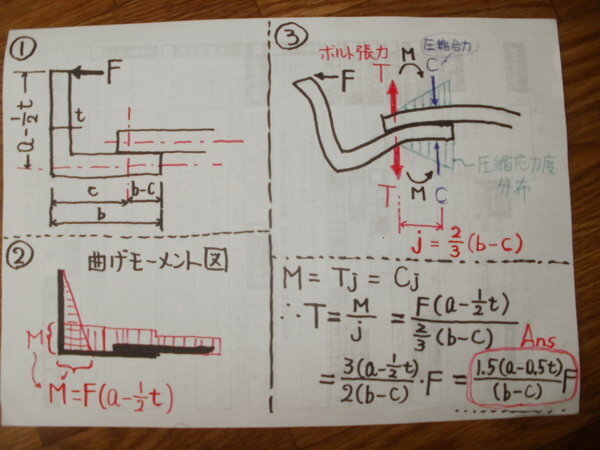 ①
F
a-½t
t
c
b-c
b
②
曲げモーメント図
M
M=F(a-½t)
③
ボルト張力
M
圧縮合力
F
T
C
圧縮応力度
分布
T
M
C
j=⅔(b-c)
M=Tj=Cj
∴T=M/j=F(a-½t)/⅔(b-c)
Ans
=3(a-½t)/2(b-c)・F=1.5(a-0.5t)/(b-c)F